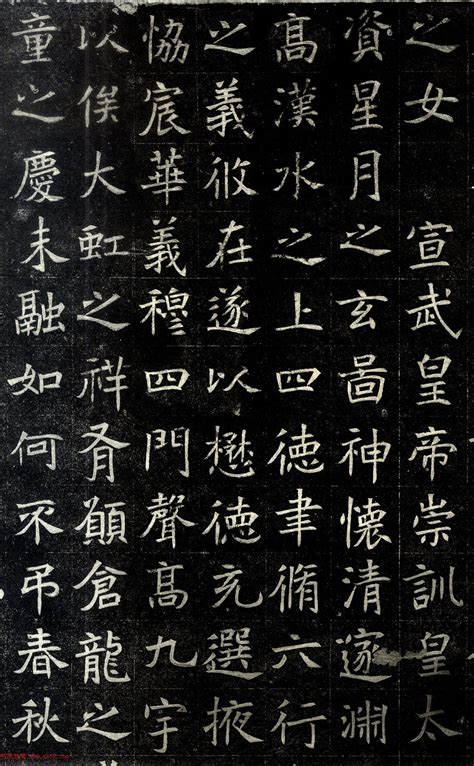 之女　宣武皇帝崇訓皇太
資星月之玄啚神懷清邃淵
髙漢水之上四徳聿脩六行
之義攸在遂以懋徳充選掖
恊宸華義穆四門聲髙九宇
以俟大虹之祥胥願倉龍之
童之慶未融如何不弔春秋